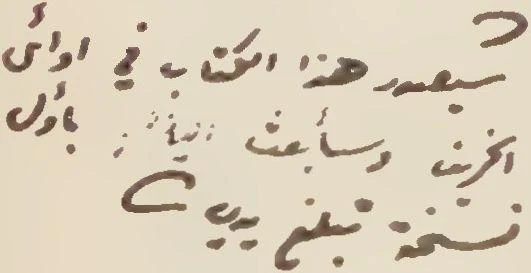 سيصدر هذا الكتاب في اوائل
الخريف وسأبعث اليك بأول
نسخة تبلغ يدي